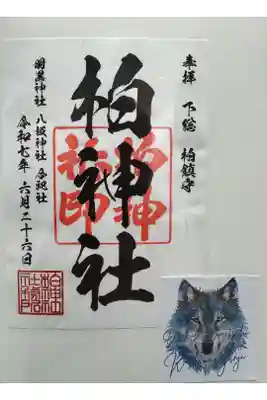 奉拝 下総 柏鎮守
柏神社
柏神
社印
羽黒神社 八坂神社 合祀社
令和七年 六月二十六日